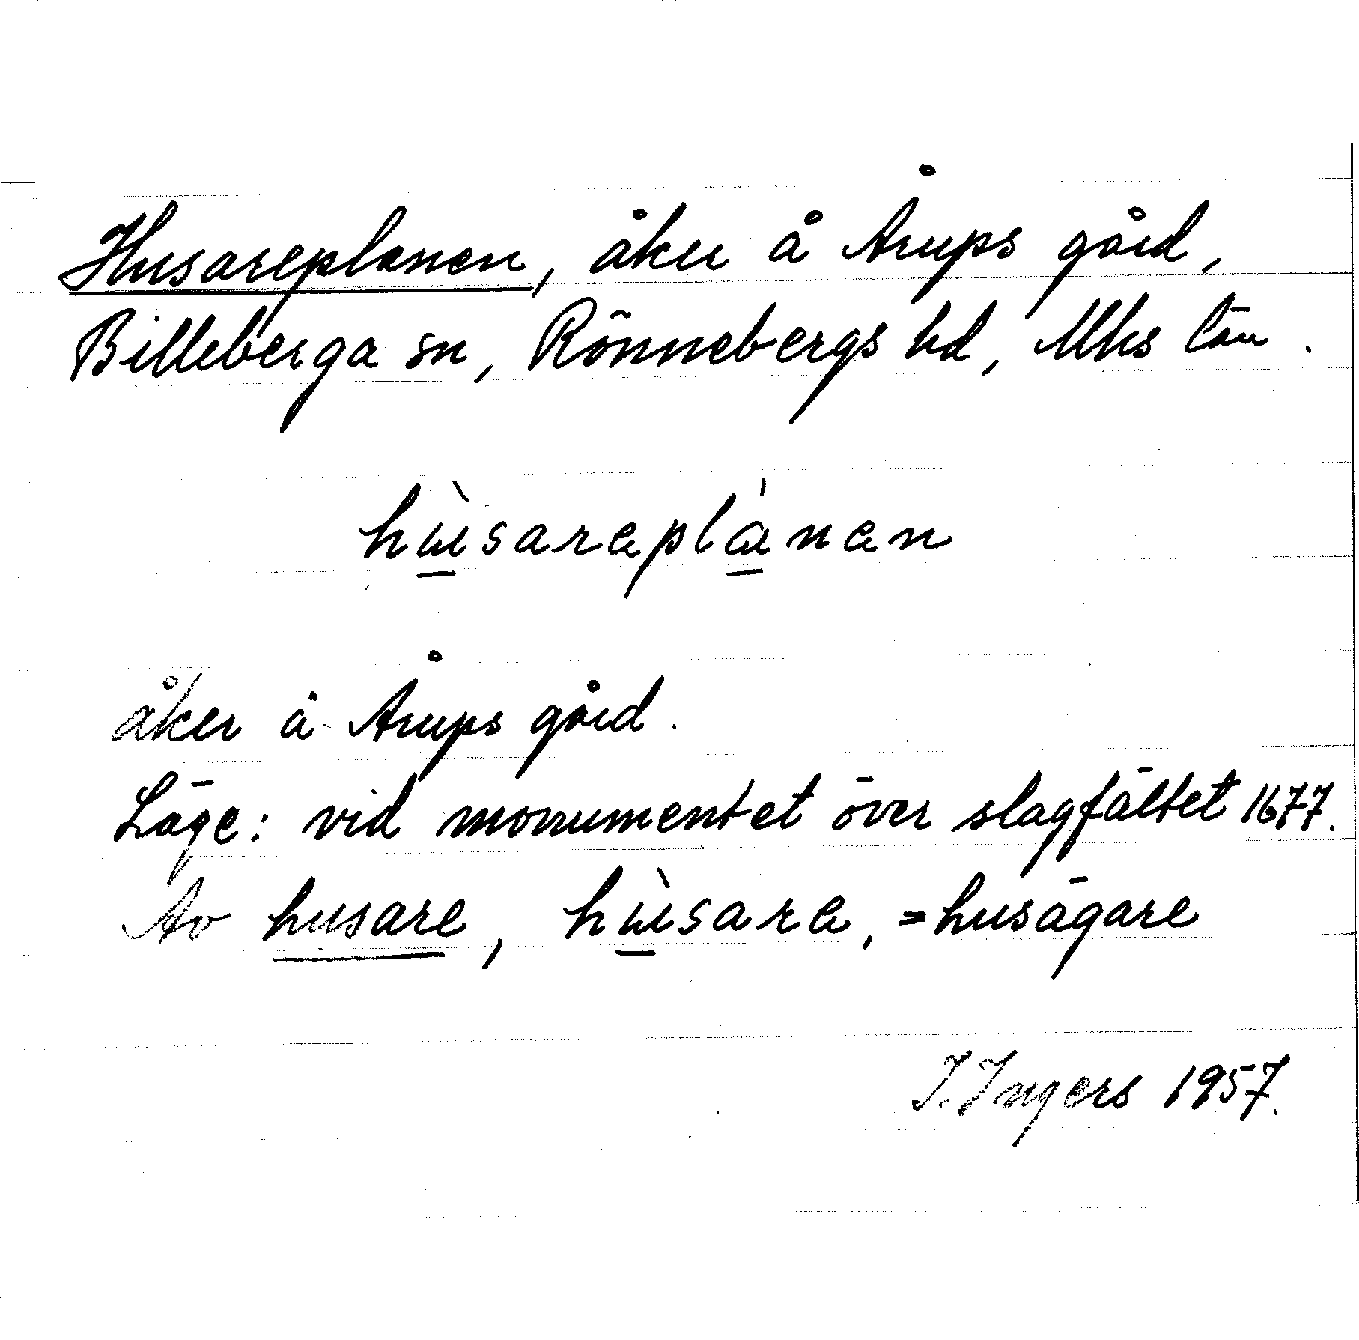 Husareplanen, åker å Årups gård,
Billeberga sn, Rönnebergs hd, Mhs län.
hùsareplánen
åker å Årups gård.
Läge: vid monumentet över slagfältet 1677.
Av husare, hùsare, = husägare
I. Ingers 1957.